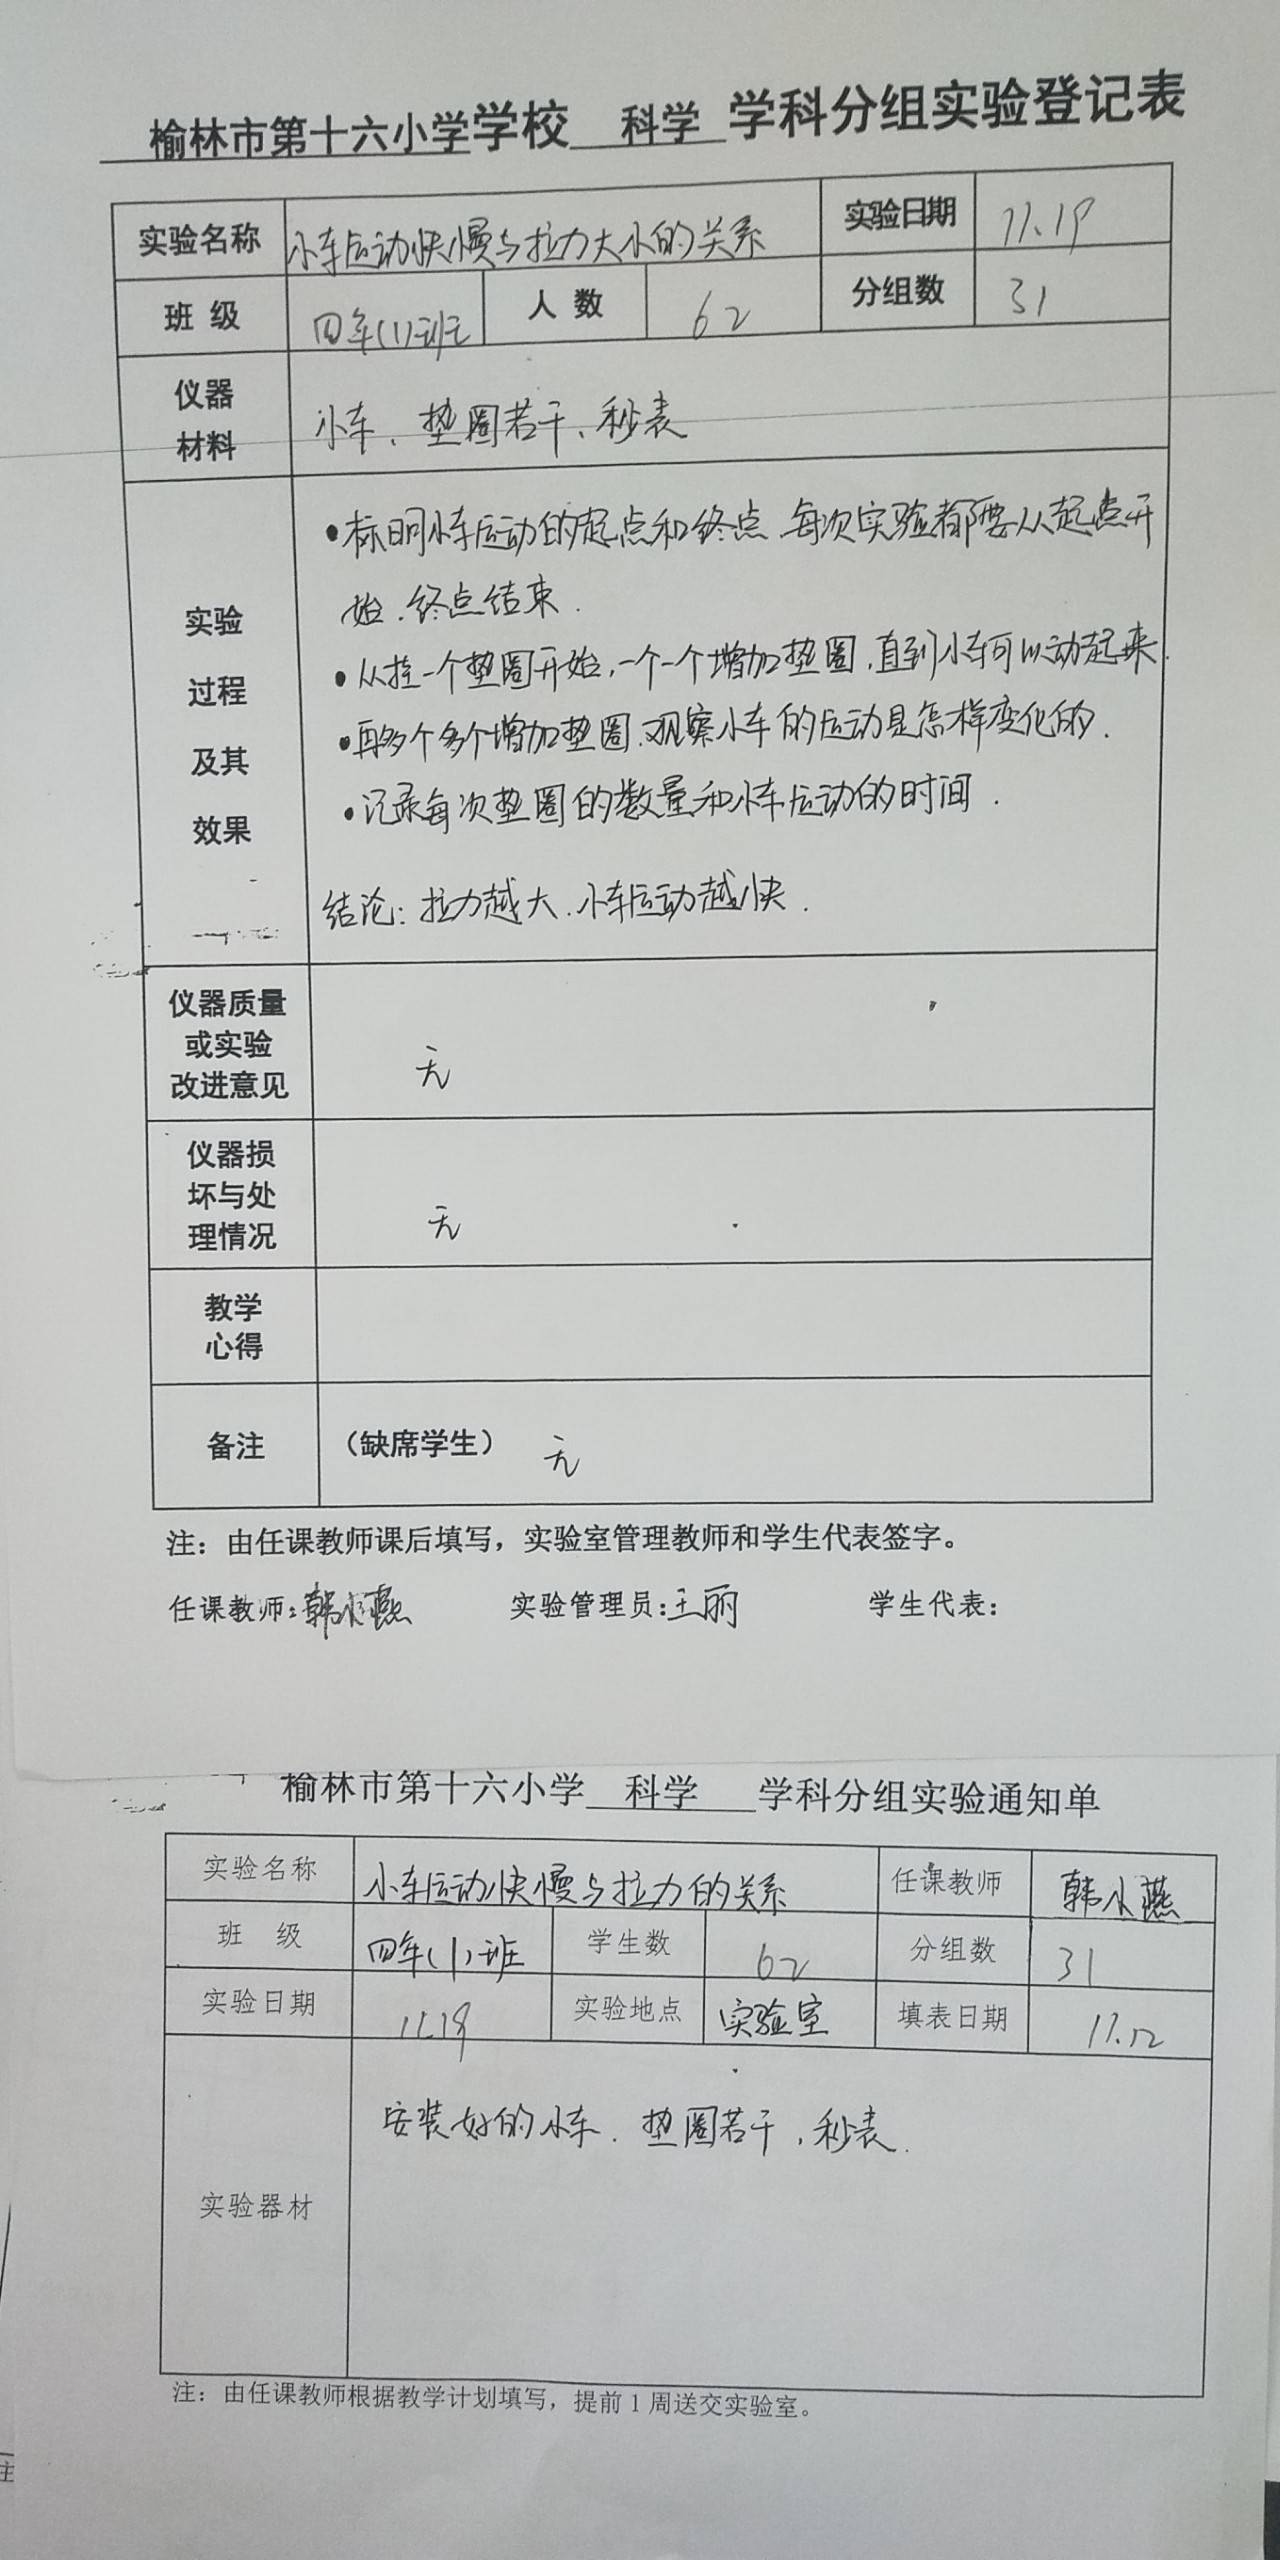 榆林市第十六小学学校 科学 学科分组实验登记表
实验名称 小车运动快慢与拉力大小的关系 实验日期 11.19
班 级 四年(1)班 人 数 62 分组数 31
仪器
材料
小车、垫圈若干、秒表
实验
过程
及其
效果
•标明小车运动的起点和终点.每次实验都要从起点开
始.终点结束.
•从挂一个垫圈开始,一个一个增加垫圈,直到小车可以动起来.
•再多个多个增加垫圈.观察小车的运动是怎样变化的.
•记录每次垫圈的数量和小车运动的时间.
结论:拉力越大.小车运动越快.
仪器质量
或实验
改进意见
无
仪器损
坏与处
理情况
无
教学
心得
备注 （缺席学生） 无
注：由任课教师课后填写，实验室管理教师和学生代表签字。
任课教师：韩小燕 实验管理员：王丽 学生代表：
榆林市第十六小学 科学 学科分组实验通知单
实验名称 小车运动快慢与拉力的关系 任课教师 韩小燕
班 级 四年(1)班 学生数 62 分组数 31
实验日期 11.19 实验地点 实验室 填表日期 11.12
实验器材
安装好的小车.垫圈若干,秒表.
注：由任课教师根据教学计划填写，提前1周送交实验室。
注